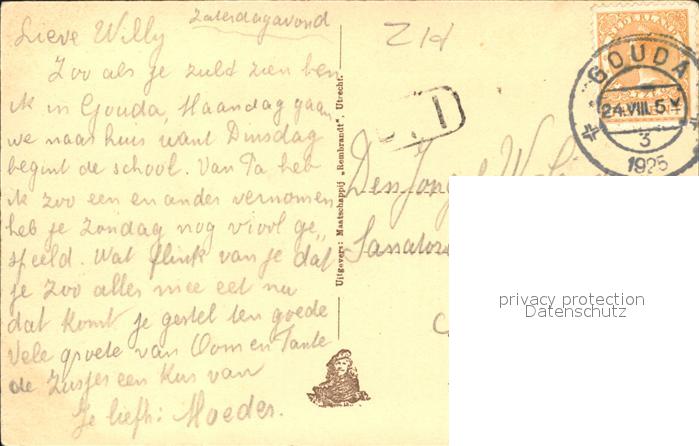 Zaterdagavond
Lieve Willy
Zoo als je zuld zien ben
ik in Gouda, Maandag gaan
we naar huis want Dinsdag
begint de school. Van Pa heb
ik zoo een en ander vernomen
heb je Zondag nog viool ge„
speeld. Wat flink van je dat
je zoo alles mee eet nu
dat komt je gestel ten goede
Vele groete van Oom en Tante
de Zusjes een Kus van
Je liefh: Moeder.
Uitgevers: Maatschappij „Rembrandt”, Utrecht.
NEDERLAND
GOUDA
24.VIII.5
3
1925
Den
privacy protection
Datenschutz